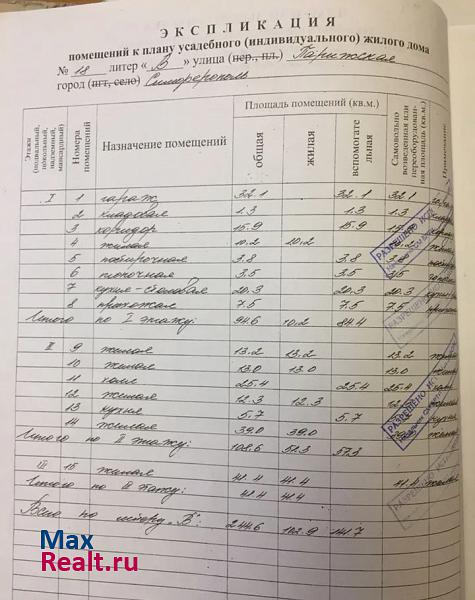 ЭКСПЛИКАЦИЯ
помещений к плану усадебного (индивидуального) жилого дома
№ 18 литер « В » улица (пер., пл.) Парижская
город (пгт, село) Симферополь
Этажи (подвальный, цокольный, надземный, мансардный) Номера помещений Назначение помещений Площадь помещений (кв.м.) общая жилая вспомогательная Самовольно возведенная или переоборудованная площадь (кв.м.) Примечание
I 1 гараж 32.1 32.1 32.1
2 кладовая 1.3 1.3 1.3
3 коридор 15.9 15.9
4 жилая 10.2 10.2
5 3.8 3.8 3.8
6 топочная 3.5 3.5 3.5
7 кухня-столовая 20.3 20.3 20.3
8 прихожая 7.5 7.5 7.5
Итого по I этажу: 94.6 10.2 84.4
II 9 жилая 13.2 13.2 13.2
10 жилая 13.0 13.0 13.0
11 холл 25.4 25.4 25.4
12 жилая 12.3 12.3
13 кухня 5.7 5.7
14 жилая 39.0 39.0
Итого по II этажу: 108.6
III 15 жилая 41.4 41.4 41.4
Итого по этажу: 41.4 41.4
Всего по литеру „В": 244.6
РАЗРЕШЕНО
РАЗРЕШЕНО
РАЗРЕШЕНО
РАЗРЕШЕНО
Max
Realt.ru